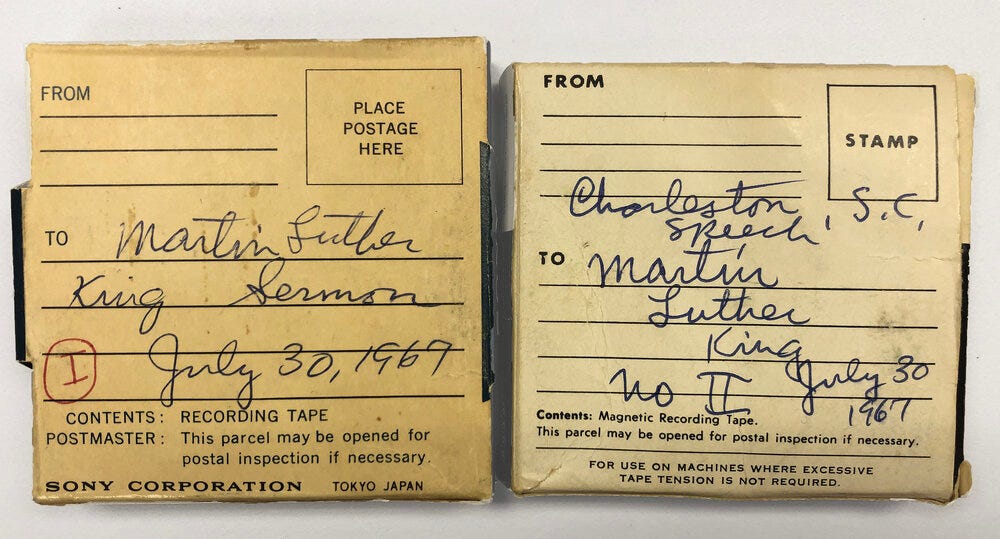 FROM
PLACE
POSTAGE
HERE
TO Martin Luther
King Sermon
I July 30, 1967
CONTENTS: RECORDING TAPE
POSTMASTER: This parcel may be opened for
postal inspection if necessary.
SONY CORPORATION TOKYO JAPAN
FROM
STAMP
Charleston, S.C.
Speech
TO Martin
Luther
King
No II July 30
1967
Contents: Magnetic Recording Tape.
This parcel may be opened for postal inspection if necessary.
FOR USE ON MACHINES WHERE EXCESSIVE
TAPE TENSION IS NOT REQUIRED.